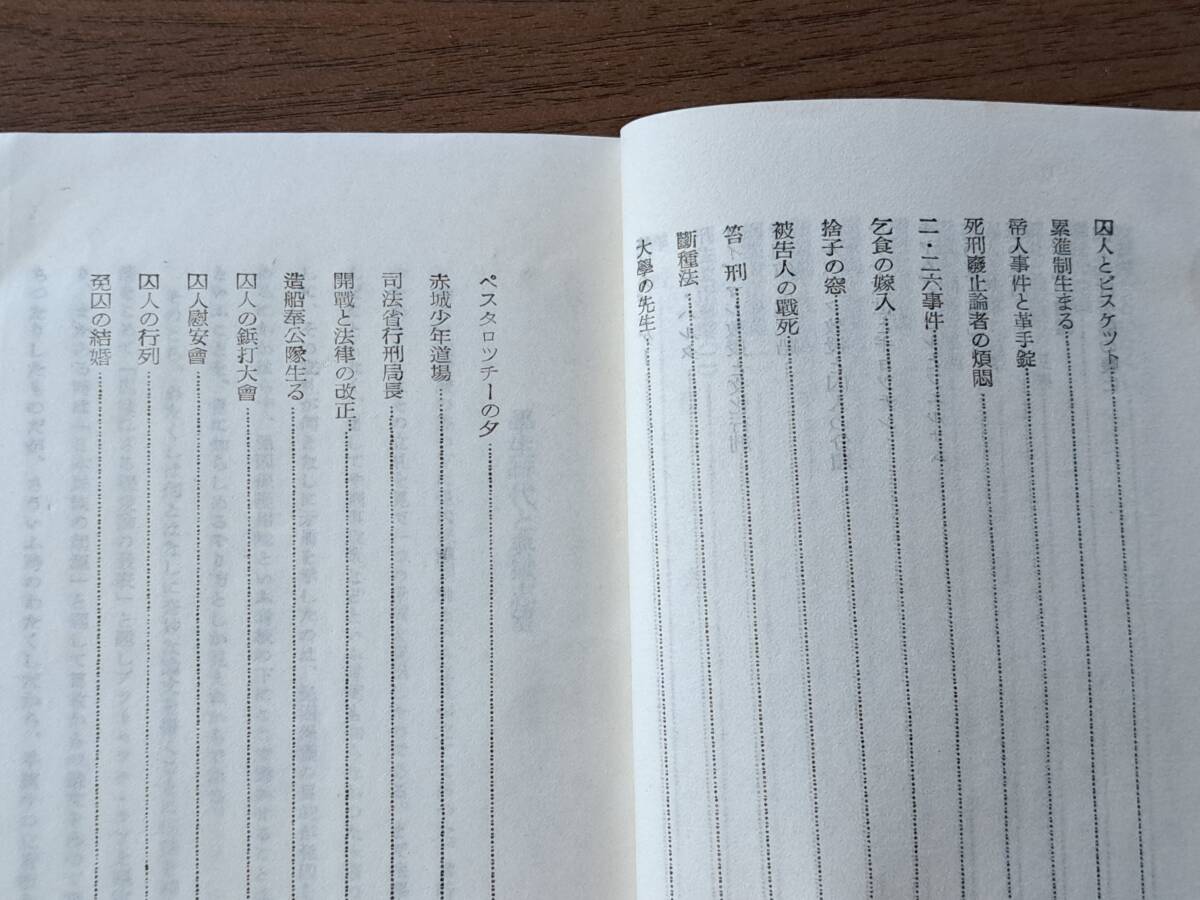 囚人とビスケツト
累進制生まる
帝人事件と革手錠
死刑廢止論者の煩悶
二・二六事件
乞食の嫁入
捨子の窓
被告人の戰死
笞刑
斷種法
大學の先生
ペスタロツチーの夕
赤城少年道場
司法省行刑局長
開戰と法律の改正
造船奉公隊生る
囚人の鋲打大會
囚人慰安會
囚人の行列
免囚の結婚